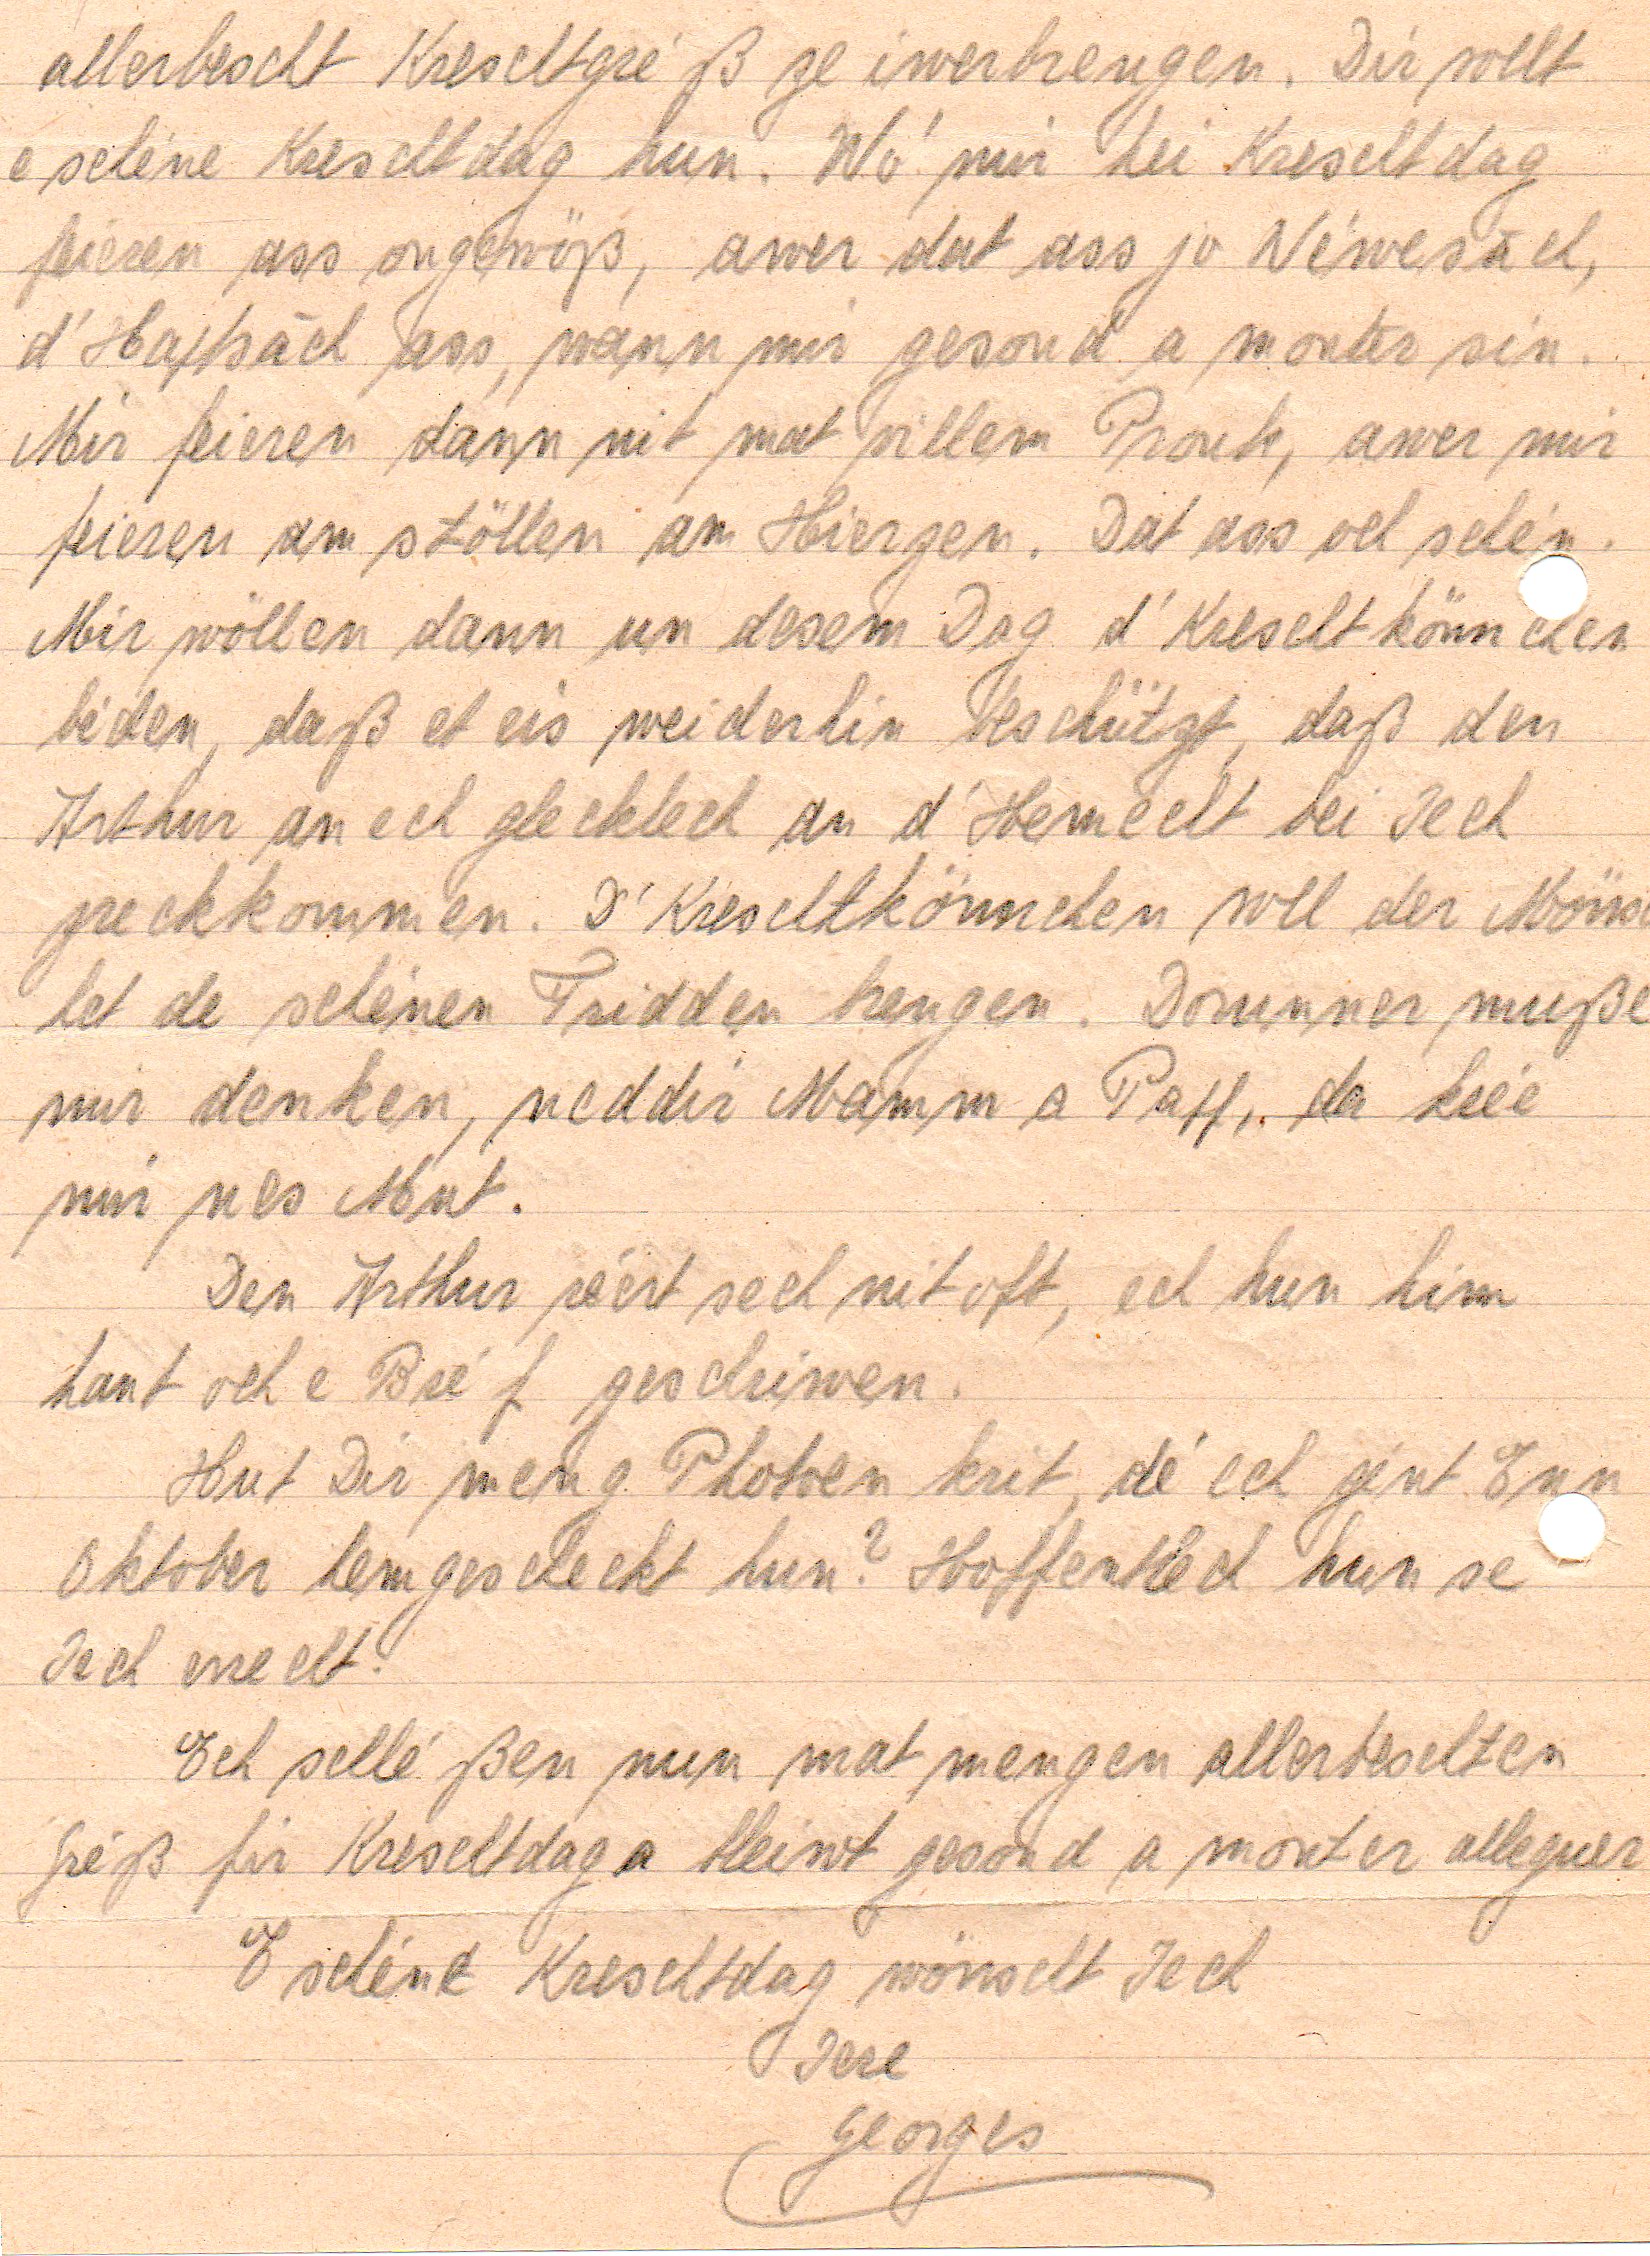 allerbescht Kreschtgré ß ze iwerbrengen. Dir sollt
e schéne Kreschtdag hun. Wó mir hei Kreschtdag
feieren ass ongewöß, awer dat ass jo Néwesäch,
d'Haptsäch ass, wann mir gesond a monter sin.
Mir feieren dann nit mat villem Pronk, awer mir
feieren am stöllen am Hierzen. Dat ass och schén.
Mir wöllen dann un desem Dag d'Kreschtkönnchen
bieden, daß et eis weiderhin beschützt, daß den
Arthur an ech glecklech an d'Hemecht bei Iech
zreckkommen. D'Kreschtkönnchen soll der Mönsch
het de schénen Fridden brengen. Dorunner muße
mir denken, veddir Mamm a Papp, da kréie
mir nes Mut.
Den Arthur réert sech nit oft, ech hun him
haut och e Bréf geschriwen.
Hut Dir meng Photoen krit, dé ech gént Enn
Oktober hemgescheckt hun? Hoffentlech hun se
Iech erreecht.
Ech schlé ßen nun mat mengen allerbeschten
Gréß fir Kreschtdag a bleiwt gesond a monter alleguer
E schéne Kreschtdag wönscht Iech
Iere
Georges